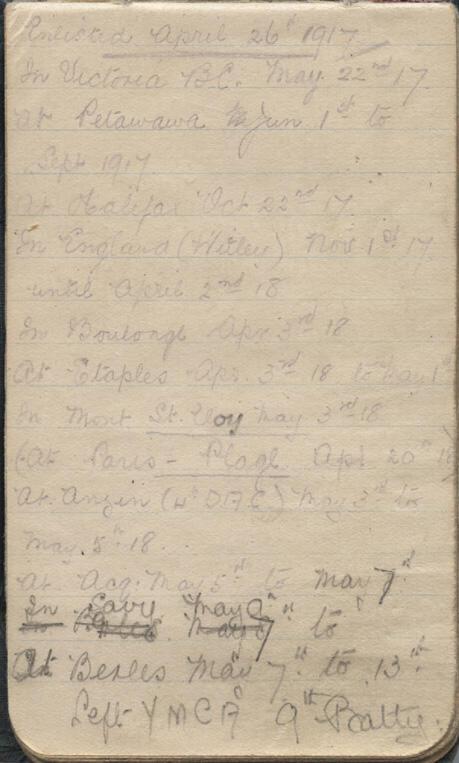 Enlisted April 26th 1917
In Victoria B.C. May 22nd 17
At Petawawa Jun 1st to
Sept 1917
At Halifax Oct 22nd 17
In England (Witley) Nov 1st 17
until April 2nd 18
In Boulongh Apr 3rd 18
At Etaples Apr. 3rd 18 to May 1st
In Mont St. Eloy May 3rd 18
(At Paris - Plage Apl 20th 18
At Anzin (4th D.A.C.) May 3rd to
May 5th 18.
At Acq. May 5th to May 7th
In Savy May 9th
May 7th to
At Berles May 7th to 13th
Left YMCA 9th Batty.